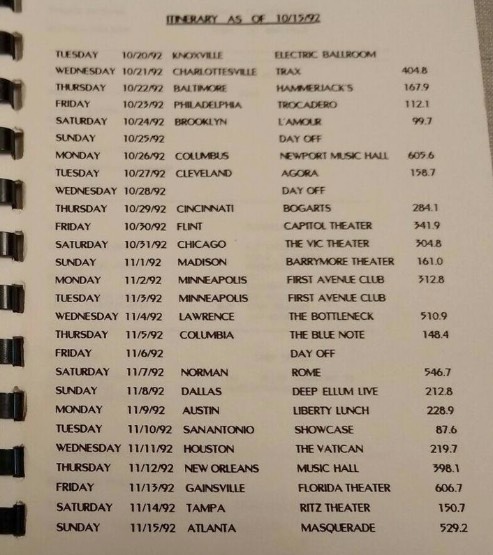 ITINERARY AS OF 10/15/92
TUESDAY 10/20/92 KNOXVILLE ELECTRIC BALLROOM
WEDNESDAY 10/21/92 CHARLOTTESVILLE TRAX 404.8
THURSDAY 10/22/92 BALTIMORE HAMMERJACK'S 167.9
FRIDAY 10/23/92 PHILADELPHIA TROCADERO 112.1
SATURDAY 10/24/92 BROOKLYN L'AMOUR 99.7
SUNDAY 10/25/92 DAY OFF
MONDAY 10/26/92 COLUMBUS NEWPORT MUSIC HALL 605.6
TUESDAY 10/27/92 CLEVELAND AGORA 158.7
WEDNESDAY 10/28/92 DAY OFF
THURSDAY 10/29/92 CINCINNATI BOGARTS 284.1
FRIDAY 10/30/92 FLINT CAPITOL THEATER 341.9
SATURDAY 10/31/92 CHICAGO THE VIC THEATER 304.8
SUNDAY 11/1/92 MADISON BARRYMORE THEATER 161.0
MONDAY 11/2/92 MINNEAPOLIS FIRST AVENUE CLUB 312.8
TUESDAY 11/3/92 MINNEAPOLIS FIRST AVENUE CLUB
WEDNESDAY 11/4/92 LAWRENCE THE BOTTLENECK 510.9
THURSDAY 11/5/92 COLUMBIA THE BLUE NOTE 148.4
FRIDAY 11/6/92 DAY OFF
SATURDAY 11/7/92 NORMAN ROME 546.7
SUNDAY 11/8/92 DALLAS DEEP ELLUM LIVE 212.8
MONDAY 11/9/92 AUSTIN LIBERTY LUNCH 228.9
TUESDAY 11/10/92 SAN ANTONIO SHOWCASE 87.6
WEDNESDAY 11/11/92 HOUSTON THE VATICAN 219.7
THURSDAY 11/12/92 NEW ORLEANS MUSIC HALL 398.1
FRIDAY 11/13/92 GAINSVILLE FLORIDA THEATER 606.7
SATURDAY 11/14/92 TAMPA RITZ THEATER 150.7
SUNDAY 11/15/92 ATLANTA MASQUERADE 529.2